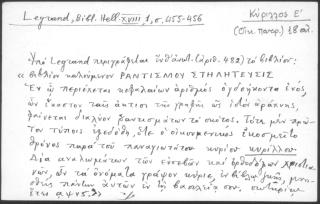 Legrand, Bibl. Hell. XVIII, 1, σ. 455-456
Κύριλλος Ε'
(Οἰκ. πατρ.) 18 αἰ.
Ὑπὸ Legrand περιγράφεται ὑπ' ἀριθ. 482) τὸ βιβλίον:
« Βιβλίον καλούμενον ΡΑΝΤΙΣΜΟΥ ΣΤΗΛΙΤΕΥΣΙΣ
Ἐν ᾧ περιέχεται κεφαλαίων ἀριθμὸς ὀγδοήκοντα ἑνός,
ὧν ἕκαστον ταῖς αὐτίσι τῆς γραφῆς ὡς ἱστοὶ ἀράχνης,
φαίνεται διαλύον ῥαντισμάτων τὸ σκότος. Τότε μὲν πρῶ-
τον τύποις ἐξεδόθη, ὅτε ὁ οἰκουμενικὸς ἐκοσμεῖτο
θρόνος παρὰ τοῦ παναγιωτάτου κυρίου κυρίλλου.
Διὰ ἀναλωμάτων τῶν εὐσεβῶν καὶ ὀρθοδόξων χριστια-
νῶν, ὧν τὰ ὀνόματα γράψον κύριε, ἐν βίβλῳ ζωῆς,
πάντων αὐτῶν ἐν τῇ βασιλείᾳ σου.
ἔτει αψνς.»